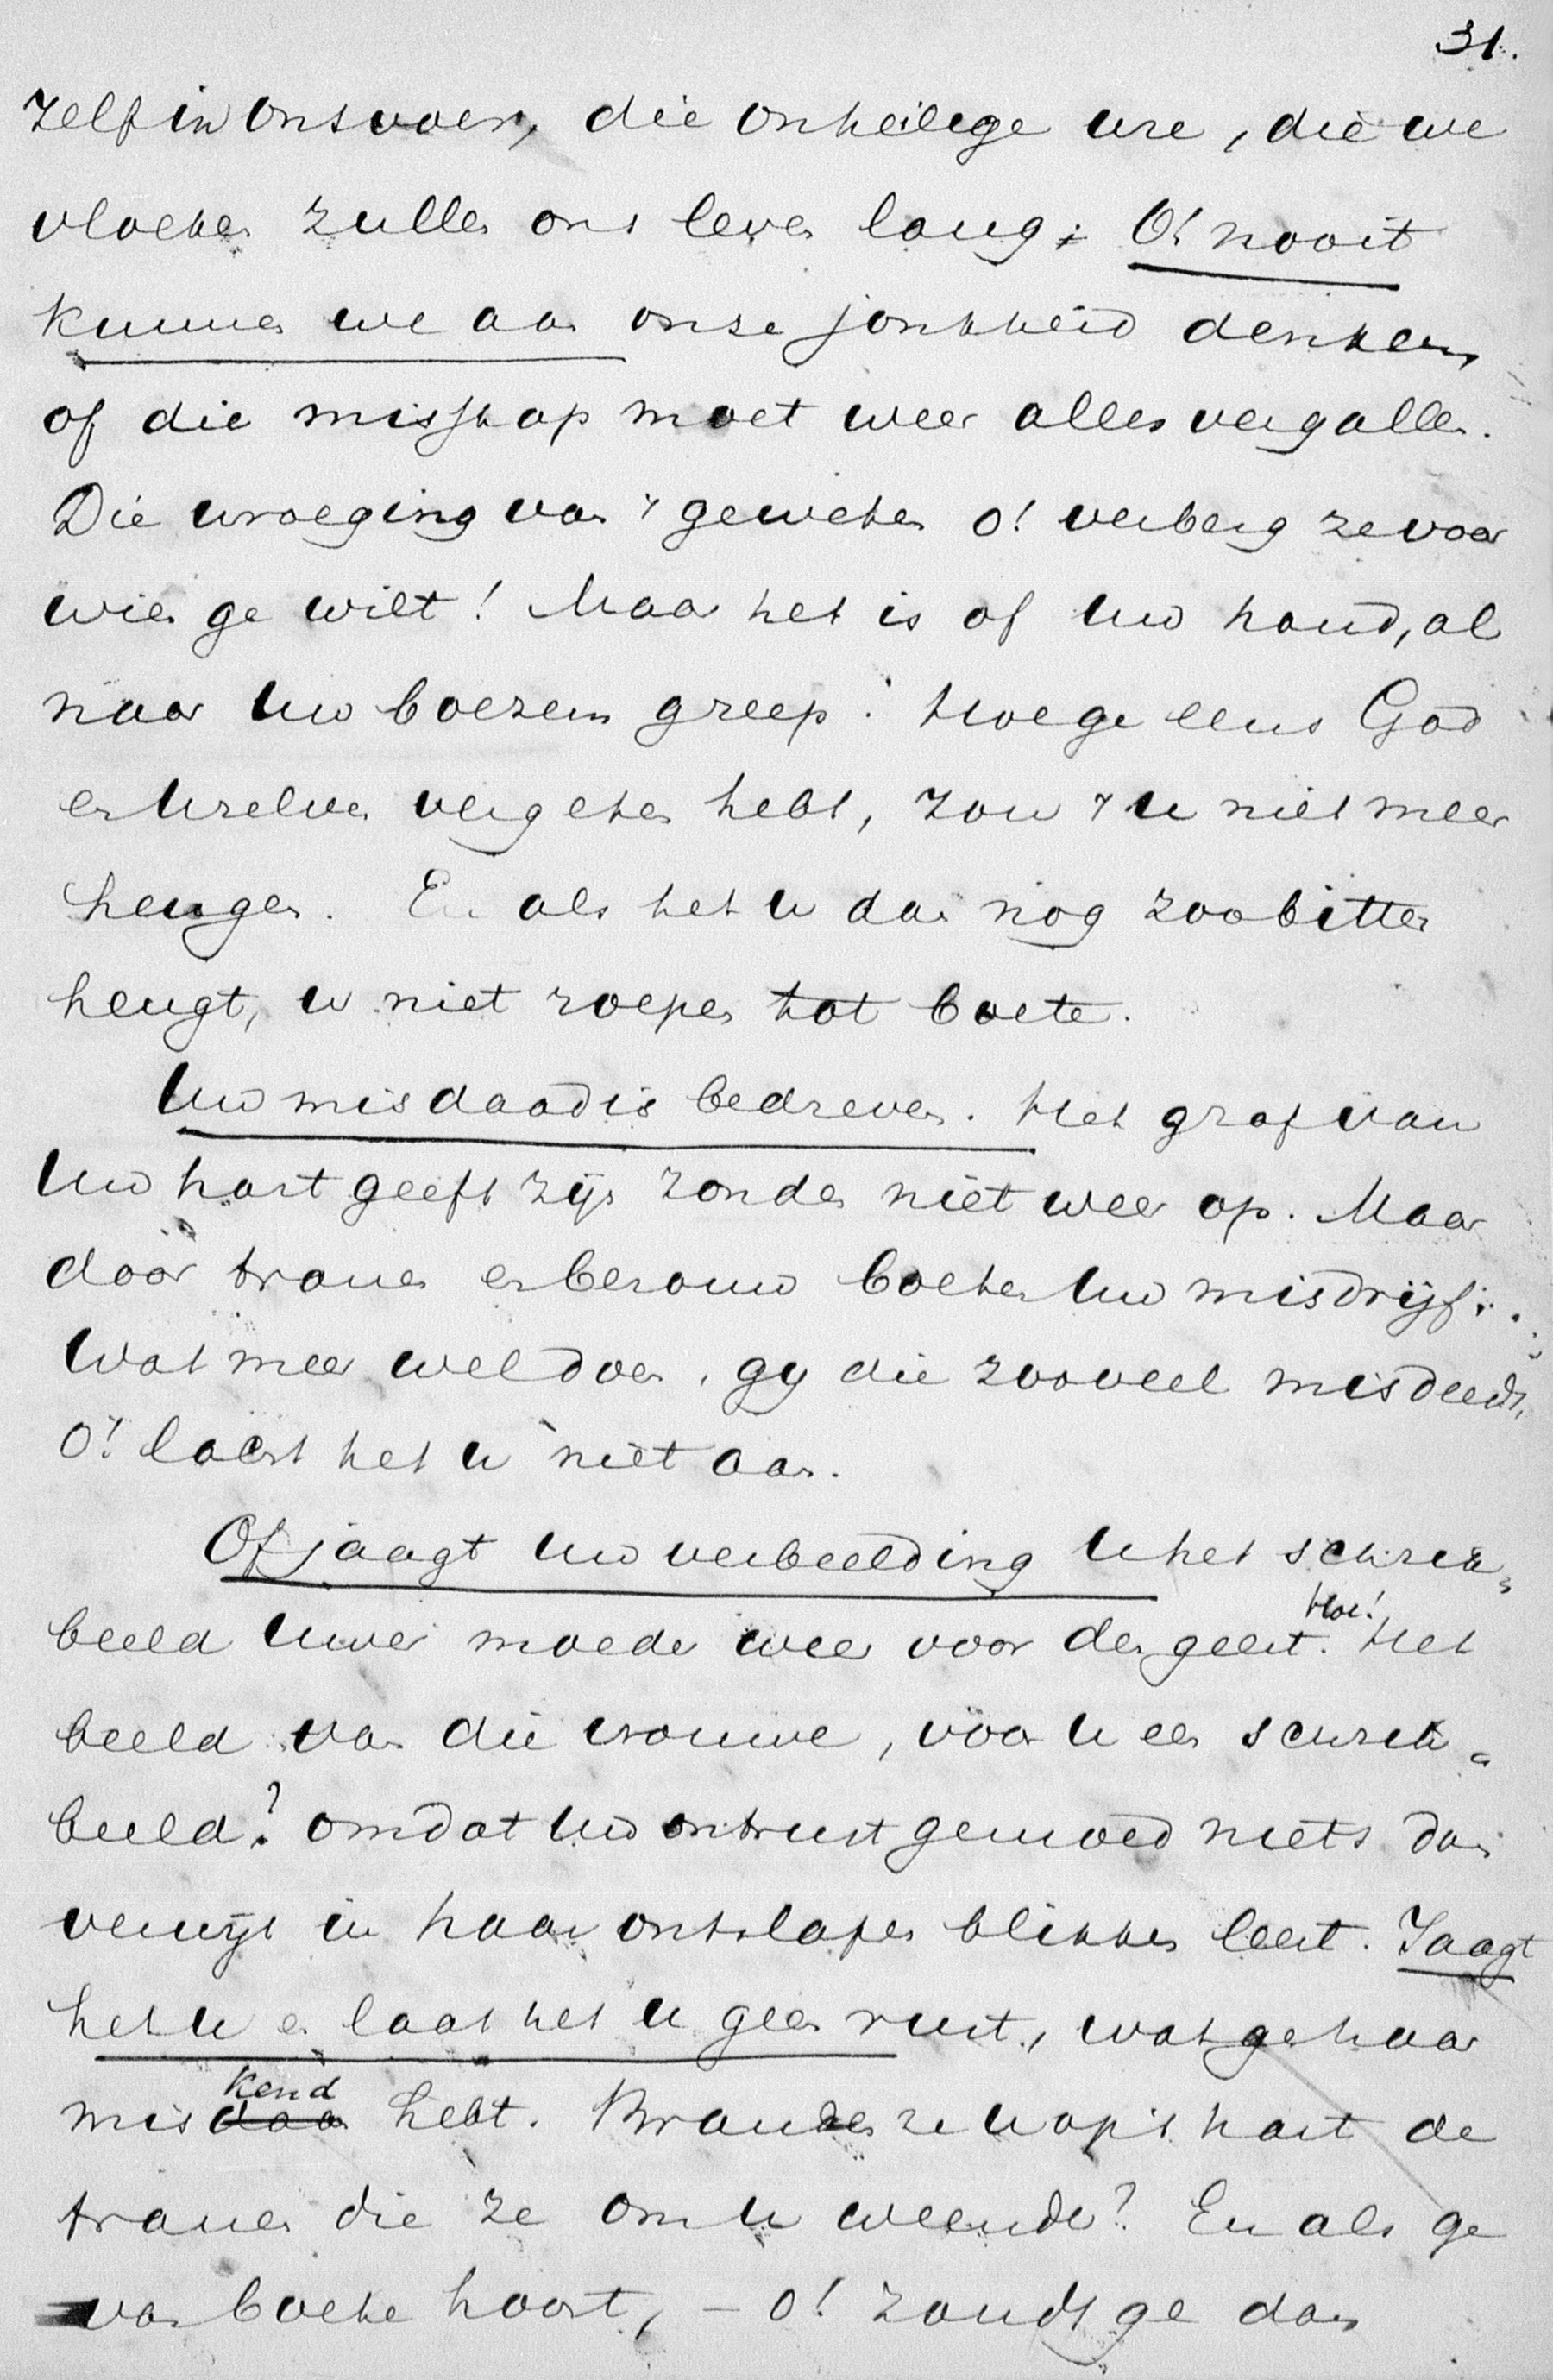 31.
zelf in ons voer, die onheilige ure, die we
vloeken zullen ons leven lang; O! nooit
kunnen we aan onze jonkheid denken,
of die misstap moet weer alles vergallen.
Die wroeging van 't geweten o! verberg ze voor
wien ge wilt! Maar het is of uw hand, al
naar uw boezem greep. Hoe ge eens God
en Uzelven vergeten hebt, zou 't u niet meer
heugen. En als het u dan nog zoo bitter
heugt, u niet roepen tot boete.
Uw misdaad is bedreven. Het graf van
Uw hart geeft zijn zonden niet weer op. Maar
door tranen en berouw boeten Uw misdrijf:
Wat meer weldoen, gy die zooveel misdeedt,
O! lacht het u niet aan.
Of jaagt uw verbeelding U het schrik-
beeld uwer moeder weer voor den geest. Hoe! Het
beeld van die vrouwe, voor U een schrik-
beeld? omdat Uw ontrust gemoed niets dan
verwijt in haar ontslapen blikken leest. Jaagt
het U en laat het u geen rust, wat ge haar
misdaan kend hebt. Branden ze U op 't hart de
tranen die ze om U weende? En als ge
van boete hoort, — o! zoudt ge dan